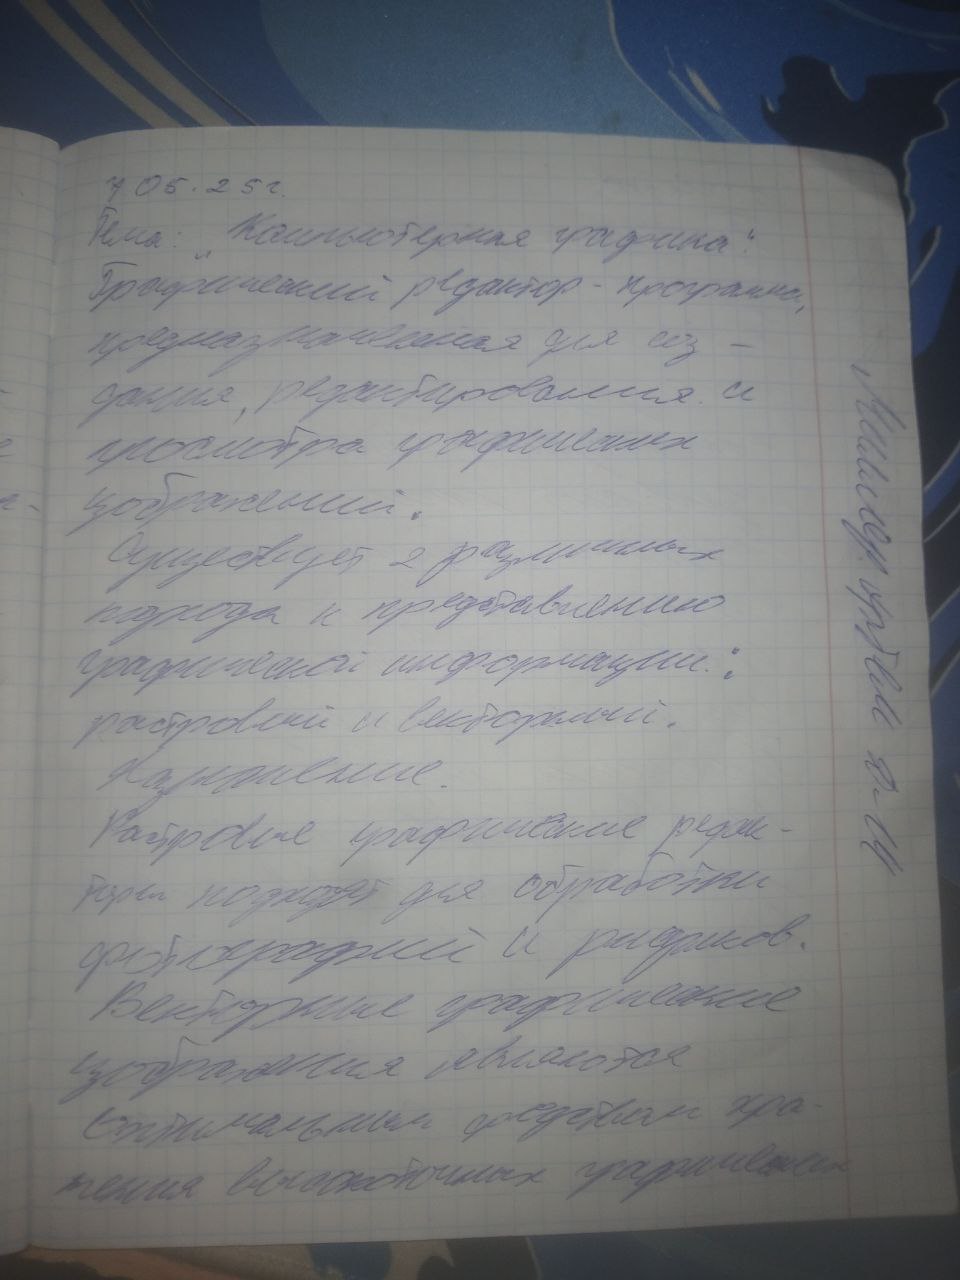 7 05.25г.
Тема: „Компьютерная графика".
Графический редактор - программа,
предназначенная для соз -
дания, редактирования и
просмотра графических
изображений.
Существует 2 различных
подхода к представлению
графической информации:
растровый и векторный.
Назначение.
Растровые графические редак-
торы подходят для обработки
фотографий и рисунков.
Векторные графические
изображения являются
оптимальным средством хра-
нения высокоточных графических